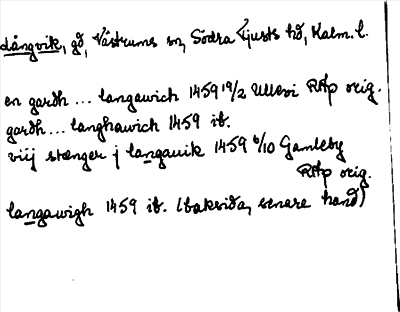 Långvik, gd, Västrums sn, Södra Tjusts hd, Kalm. l.
en gardh ... langawich 1459 19/2 Ullevi RAp orig.
gardh ... langhawich 1459 ib.
viij stænger j langauik 1459 6/10 Gamleby
RAp orig.
langawigh 1459 ib. (baksida, senare hand)